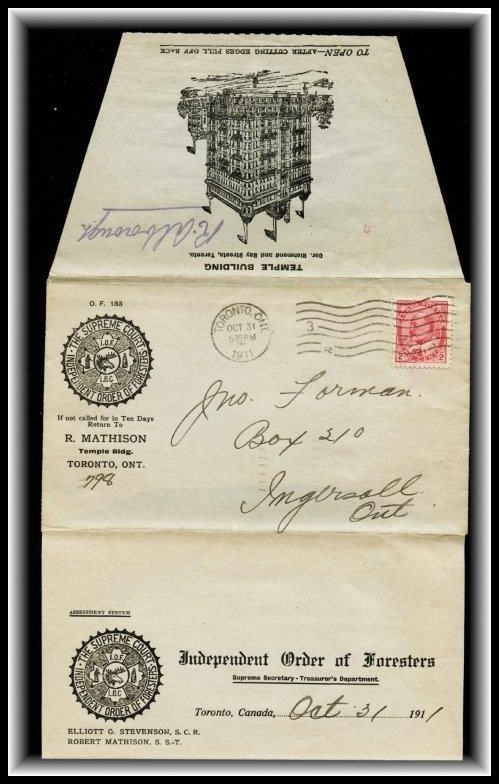 TO OPEN—AFTER CUTTING EDGES PULL OFF BACK
TEMPLE BUILDING
Cor. Richmond and Bay Streets, Toronto.
O. F. 183
THE SUPREME COURT
INDEPENDENT ORDER OF FORESTERS
I.O.F.
L.B.C
If not called for in Ten Days
Return To
R. MATHISON
Temple Bldg.
TORONTO, ONT.
798
TORONTO, ONT.
OCT 31
5 30 PM
1911
3
2 2
Jno. Forman.
Box 210
Ingersoll
Ont
ASSESSMENT SYSTEM
THE SUPREME COURT
INDEPENDENT ORDER OF FORESTERS
I.O.F.
L.B.C
Independent Order of Foresters
Supreme Secretary - Treasurer's Department.
Toronto, Canada, Oct 31 1911
ELLIOTT G. STEVENSON, S. C. R.
ROBERT MATHISON, S. S.-T.